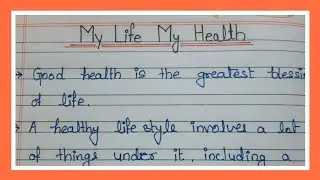 My Life My Health
→ Good health is the greatest blessin
of life.
→ A healthy life style involves a lot
of things under it, including a